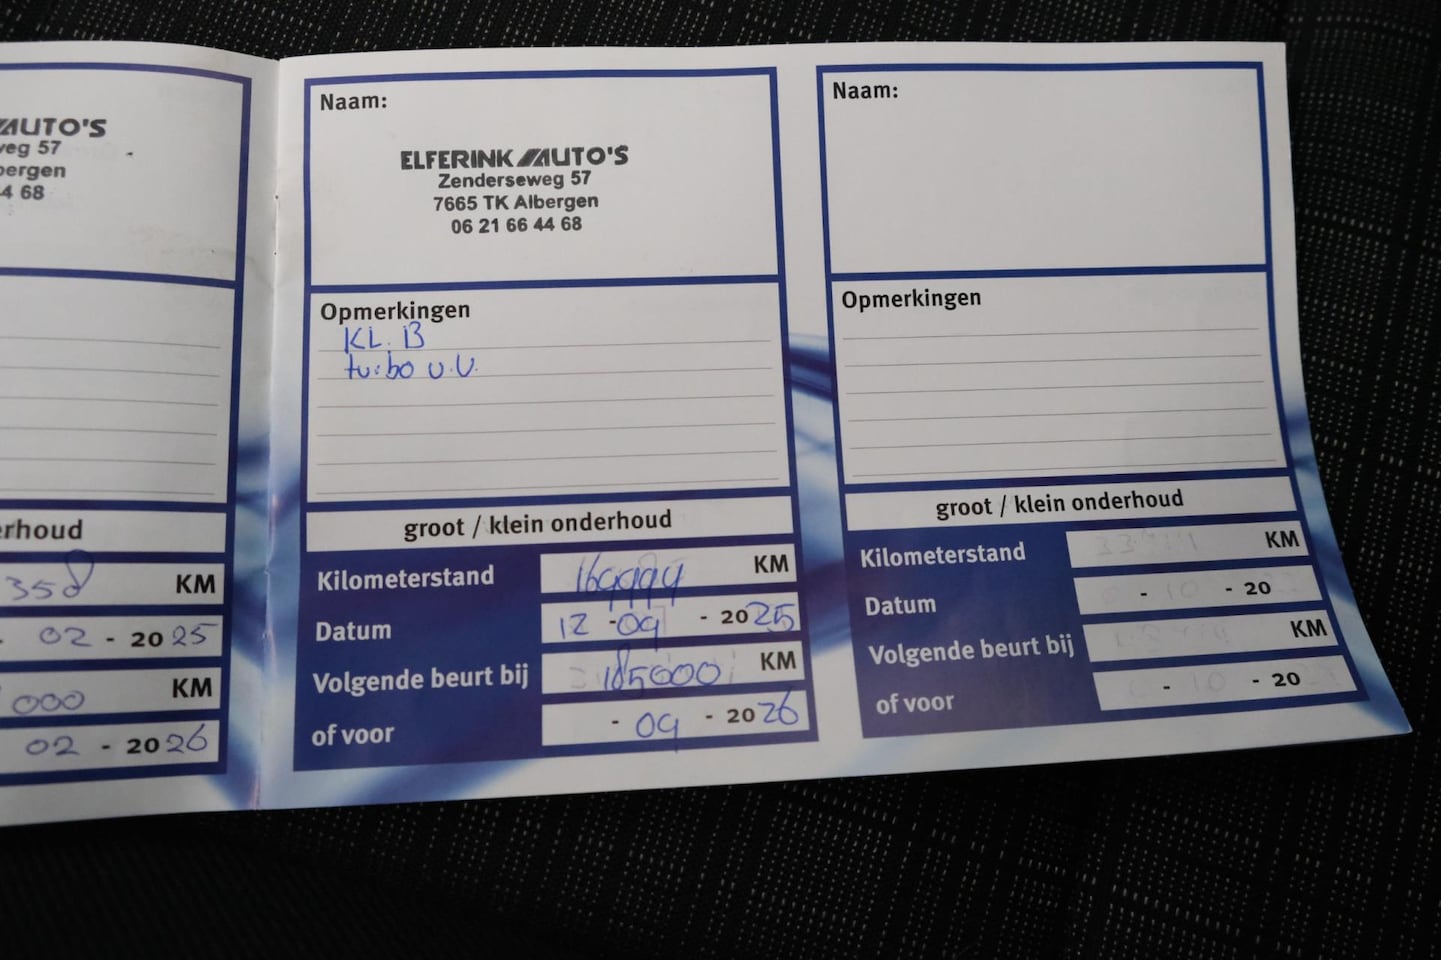 AUTO'S
weg 57
bergen
4 68
erhoud
358 KM
- 02 - 2025
000 KM
02 - 2026
Naam:
ELFERINK AUTO'S
Zenderseweg 57
7665 TK Albergen
06 21 66 44 68
Opmerkingen
KL. B
turbo v.v.
groot / klein onderhoud
Kilometerstand 169994 KM
Datum 12 - 09 - 2025
Volgende beurt bij 185000 KM
of voor - 09 - 2026
Naam:
Opmerkingen
groot / klein onderhoud
Kilometerstand KM
Datum - - 20
Volgende beurt bij KM
of voor - - 20